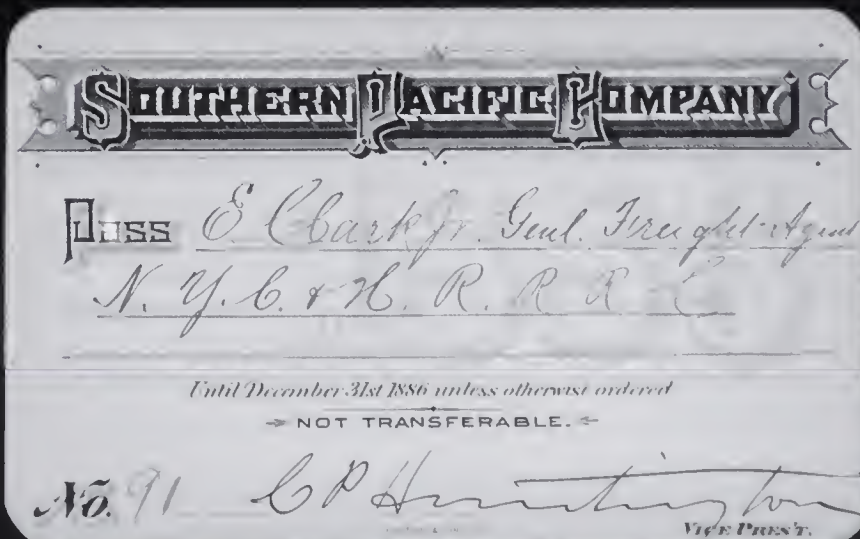 SOUTHERN PACIFIC COMPANY
Pass E. Clark Jr. Genl. Freight Agent
N. Y. C. & H. R. R. R. C
Until December 31st 1886 unless otherwise ordered
NOT TRANSFERABLE.
No. 91 C P Huntington
VICE PRES'T.